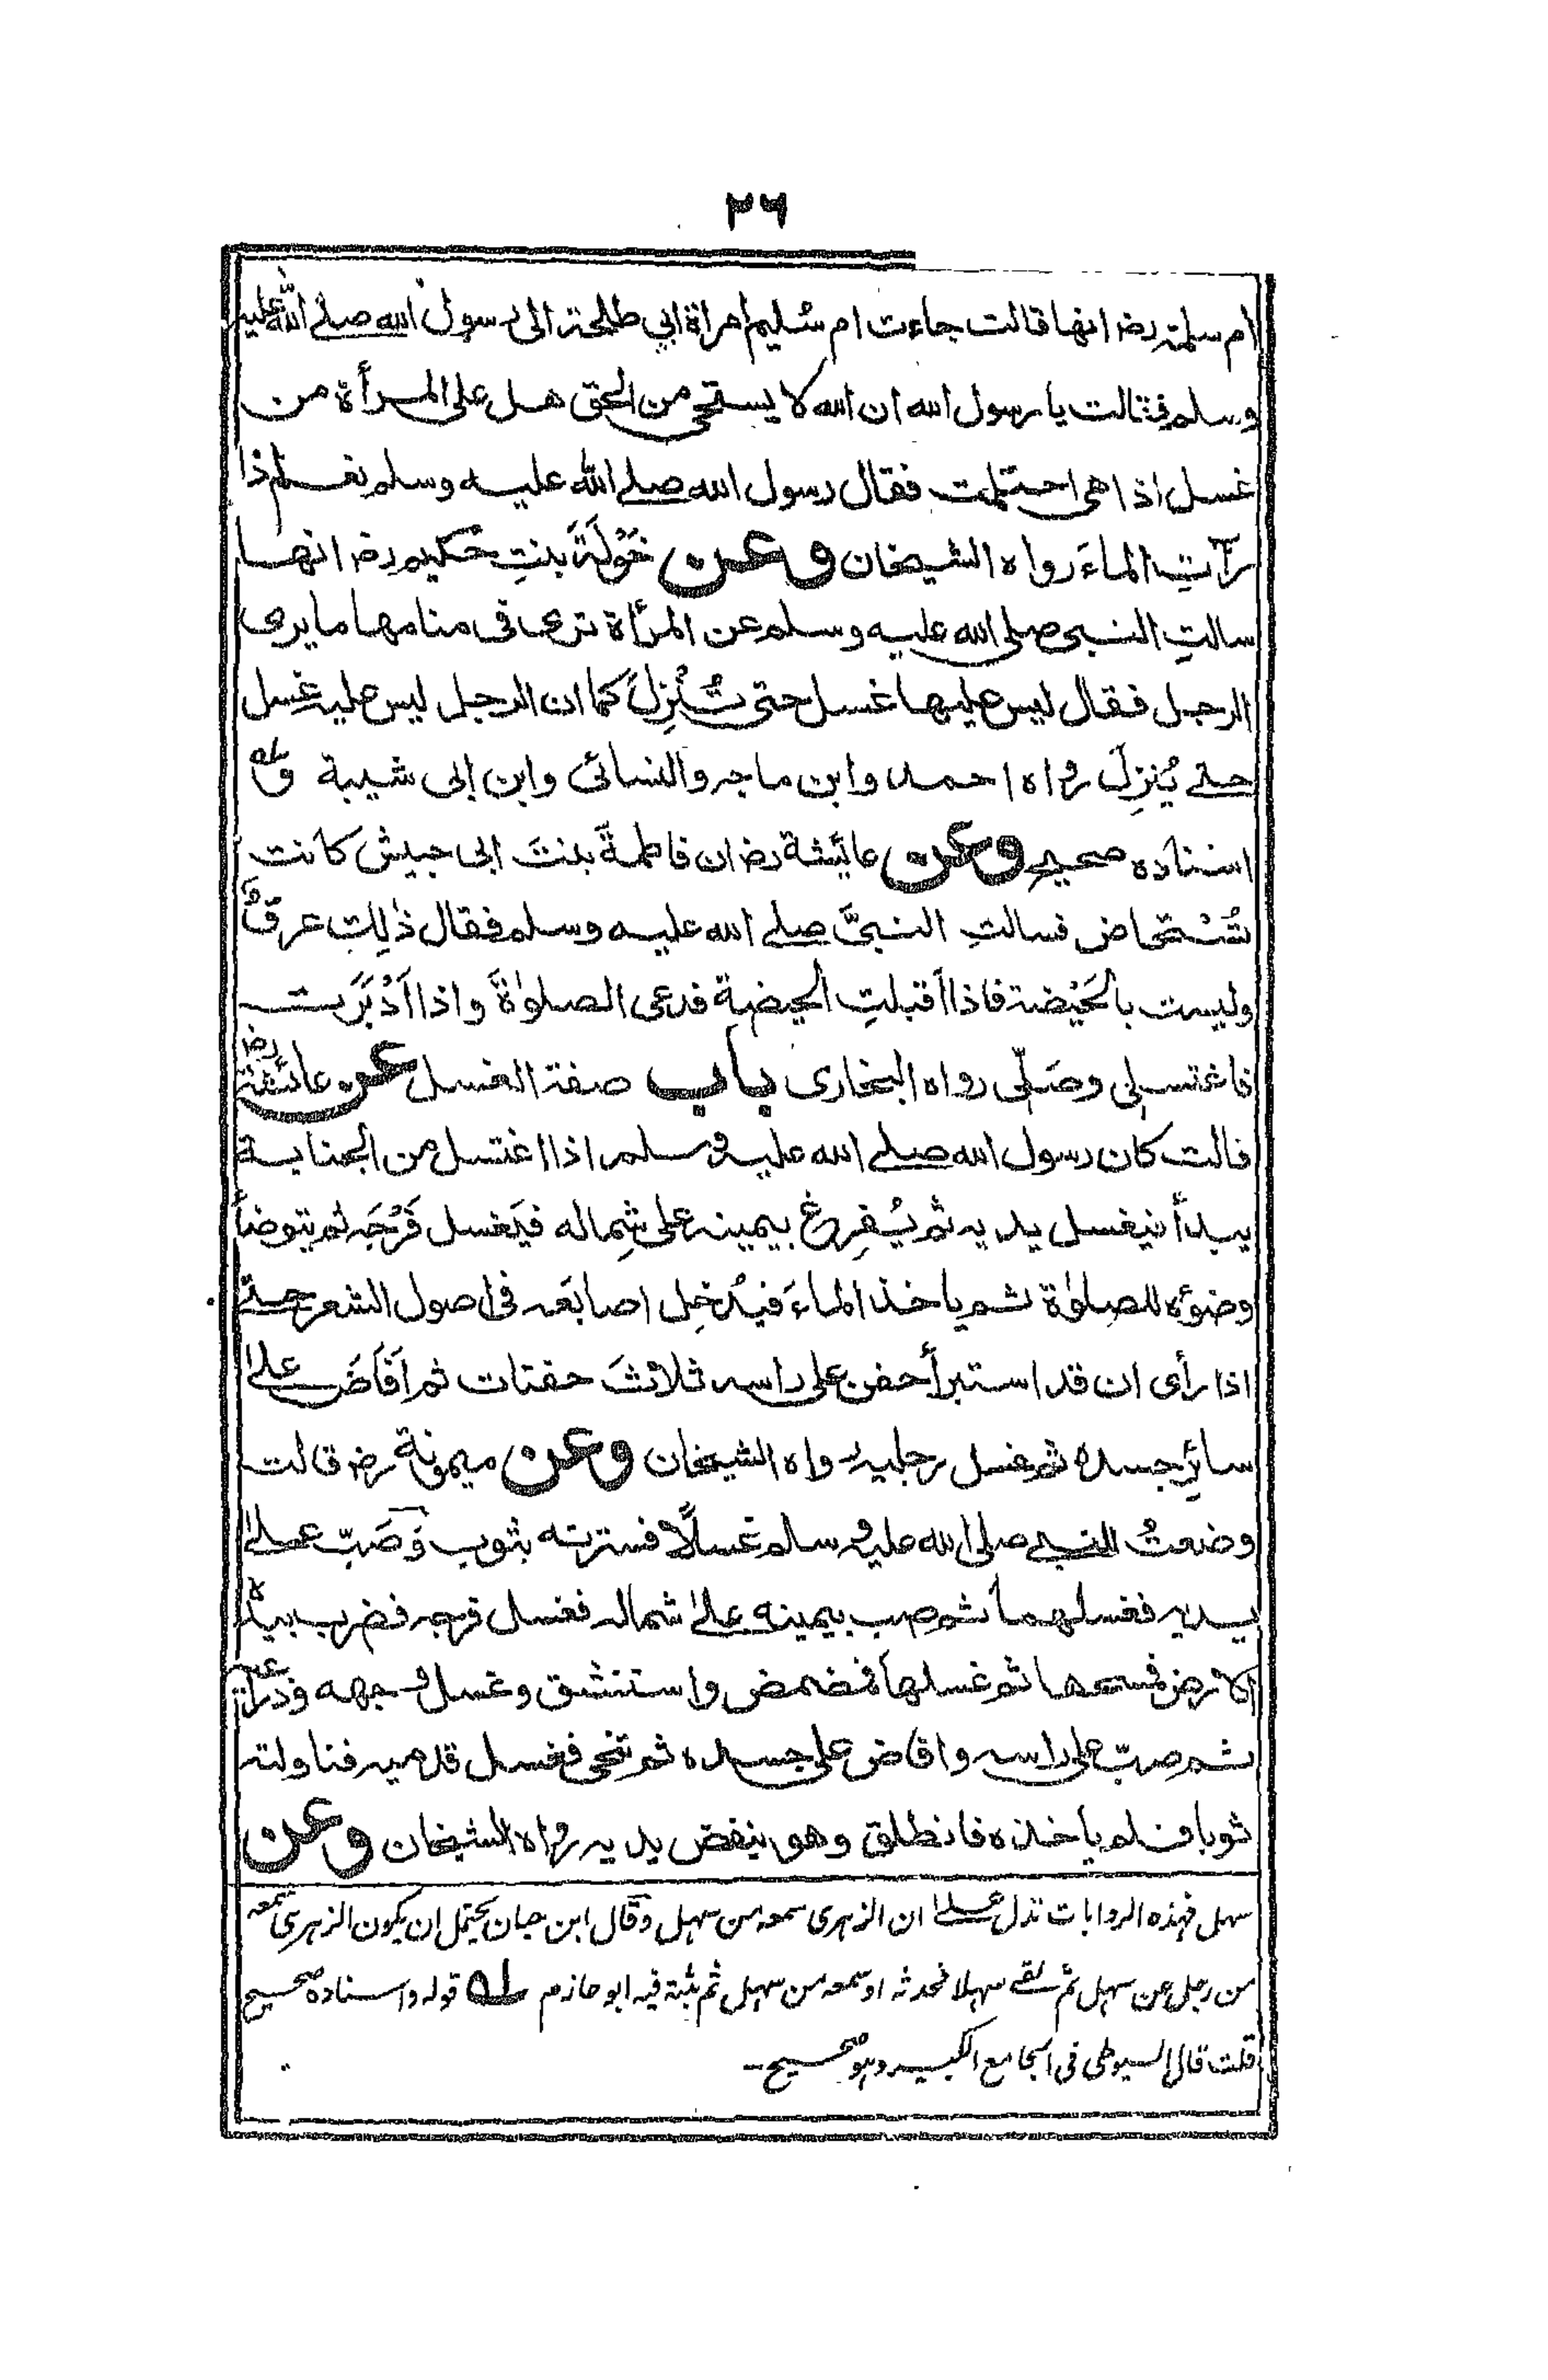 ٢٦
ام سلمة رضـ انها قالت جاءت ام سُليم امراة ابي طلحة الى رسول الله صلے الله عليه
وسلم فقالت يا رسول الله ان الله لا يستحي من الحق هل على المرأة من
غسل اذا هي احتلمت فقال رسول الله صلے الله عليه وسلم نعم اذا
رأتِ الماءَ رواه الشيخان وعن خَوْلَةَ بنتِ حكيم رضـ انها
سالتِ النبي صلى الله عليه وسلم عن المرأة ترى في منامها ما يرى
الرجل فقال ليس عليها غسل حتى تُنْزِلَ كما ان الرجل ليس عليه غسل
حتے يُنزِلَ رواه احمد وابن ماجه والنسائي وابن ابي شيبة و
اسناده صحيح وعن عائشة رضـ ان فاطمةَ بنتَ ابي حبيش كانت
تُسْتحاض فسالتِ النبيَّ صلے الله عليه وسلم فقال ذٰلِكِ عرقٌ
وليست بالحَيْضة فاذا أقبلتِ الحيضة فدعى الصلوٰةَ واذا اَدْبَرَت
فاغتسلي وصَلّى رواه البخاري باب صفة الغسل عن عائشة رضـ
قالت كان رسول الله صلے الله عليه وسلم اذا اغتسل من الجنابة
يبدأ فيغسل يديه ثم يُفرِغ بيمينه على شِماله فيَغسل فَرْجَه ثم يتوضأ
وضوءَه للصلوٰة ثم ياخذ الماءَ فيُدخِل اصابعَه في اصول الشعر حتے
اذا رأى ان قد استبرأ حفن على راسه ثلاثَ حفنات ثم اَفَاضَ علىٰ
سائرِ جسده ثم غسل رجليه رواه الشيخان وعن ميمونة رضـ قالت
وضعتُ للنبي صلى الله عليه وسلم غسلًا فسترته بثوب وَصَبّ علىٰ
يديه فغسلهما ثم صب بيمينه علىٰ شماله فغسل فرجه فضرب بيده
الارض فمسحها ثم غسلها فمضمض واستنشق وغسل وجهه وذراعيه
ثم صبّ على راسه وافاض على جسده ثم تنحى فغسل قدميه فناولته
ثوبا فلم ياخذه فانطلق وهو ينفض يديه رواه الشيخان وعن
سهل فهذه الروايات تدل علىٰ ان الزهري سمعه من سهل وقال ابن حبان يحتمل ان يكون الزهري سمعه
من رجل عن سهل ثم لقے سهلا فحدثه او سمعه من سهل ثم ثبته فيه ابو حازم ١ه قوله واسناده صحيح
قلت قال السيوطي في الجامع الكبير وهو صحيح-